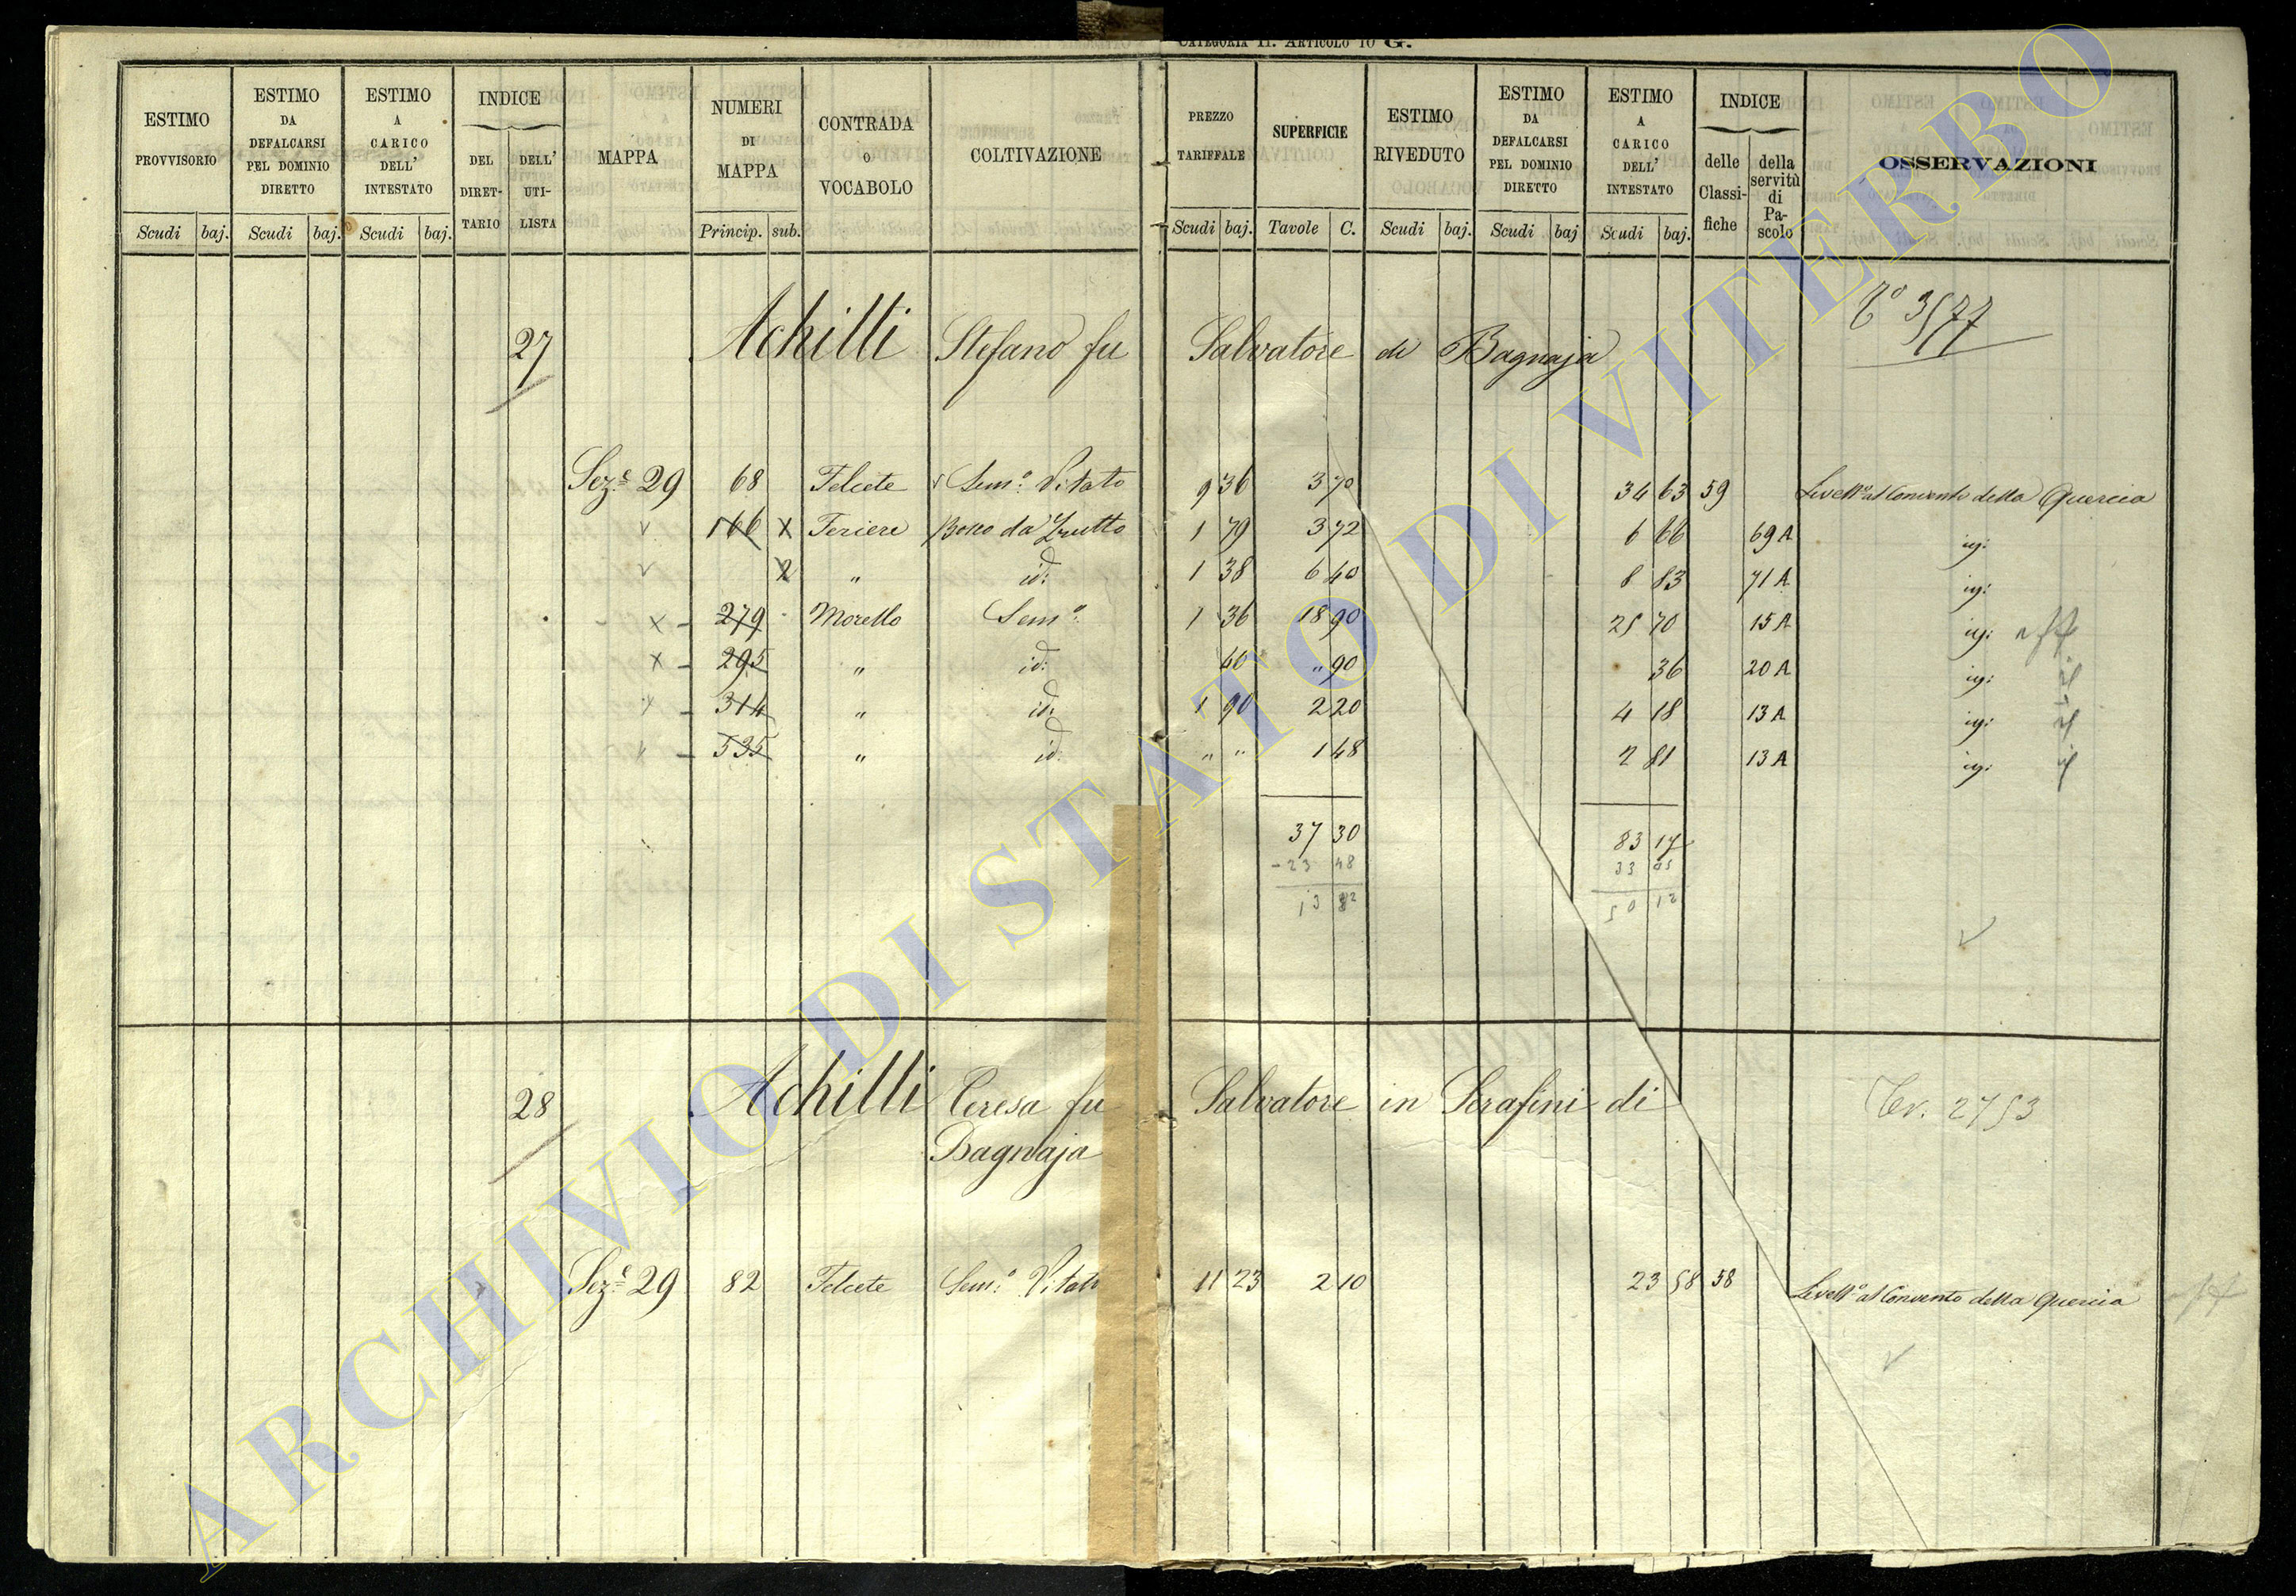 CATEGORIA II. ARTICOLO 10 G.
ESTIMO PROVVISORIO
ESTIMO DA DEFALCARSI PEL DOMINIO DIRETTO
ESTIMO A CARICO DELL' INTESTATO
INDICE
DEL DIRETTARIO
DELL' UTILISTA
MAPPA
NUMERI DI MAPPA
CONTRADA O VOCABOLO
COLTIVAZIONE
PREZZO TARIFFALE
SUPERFICIE
ESTIMO RIVEDUTO
ESTIMO DA DEFALCARSI PEL DOMINIO DIRETTO
ESTIMO A CARICO DELL' INTESTATO
INDICE
delle Classifiche
della servitù di Pascolo
OSSERVAZIONI
Scudi baj. Scudi baj. Scudi baj. Princip. sub. Scudi baj. Tavole C. Scudi baj. Scudi baj Scudi baj.
27 Achilli Stefano fu Salvatore di Bagnaja 3577
Sez.e 29 68 Felcete Sem.o Vitato 9 36 3 70 34 63 59 Livell.o al Convento della Quercia
166 X Feriere Bosco da Frutto 1 79 3 72 6 66 69 A
2 " id: 1 38 6 40 8 83 71 A
X - 279 Morello Sem.o 1 36 18 90 25 70 15 A
X - 295 " id: 40 " 90 36 20 A
- 314 " id: 1 90 2 20 4 18 13 A
- 535 " id: " " 1 48 2 81 13 A
37 30 83 17
- 23 48 33 05
13 82 50 12
28 Achilli Teresa fu Salvatore in Serafini di 2753
Bagnaja
Sez.e 29 82 Felcete Sem.o Vitato 11 23 2 10 23 58 58 Livell.o al Convento della Quercia
ARCHIVIO DI STATO DI VITERBO